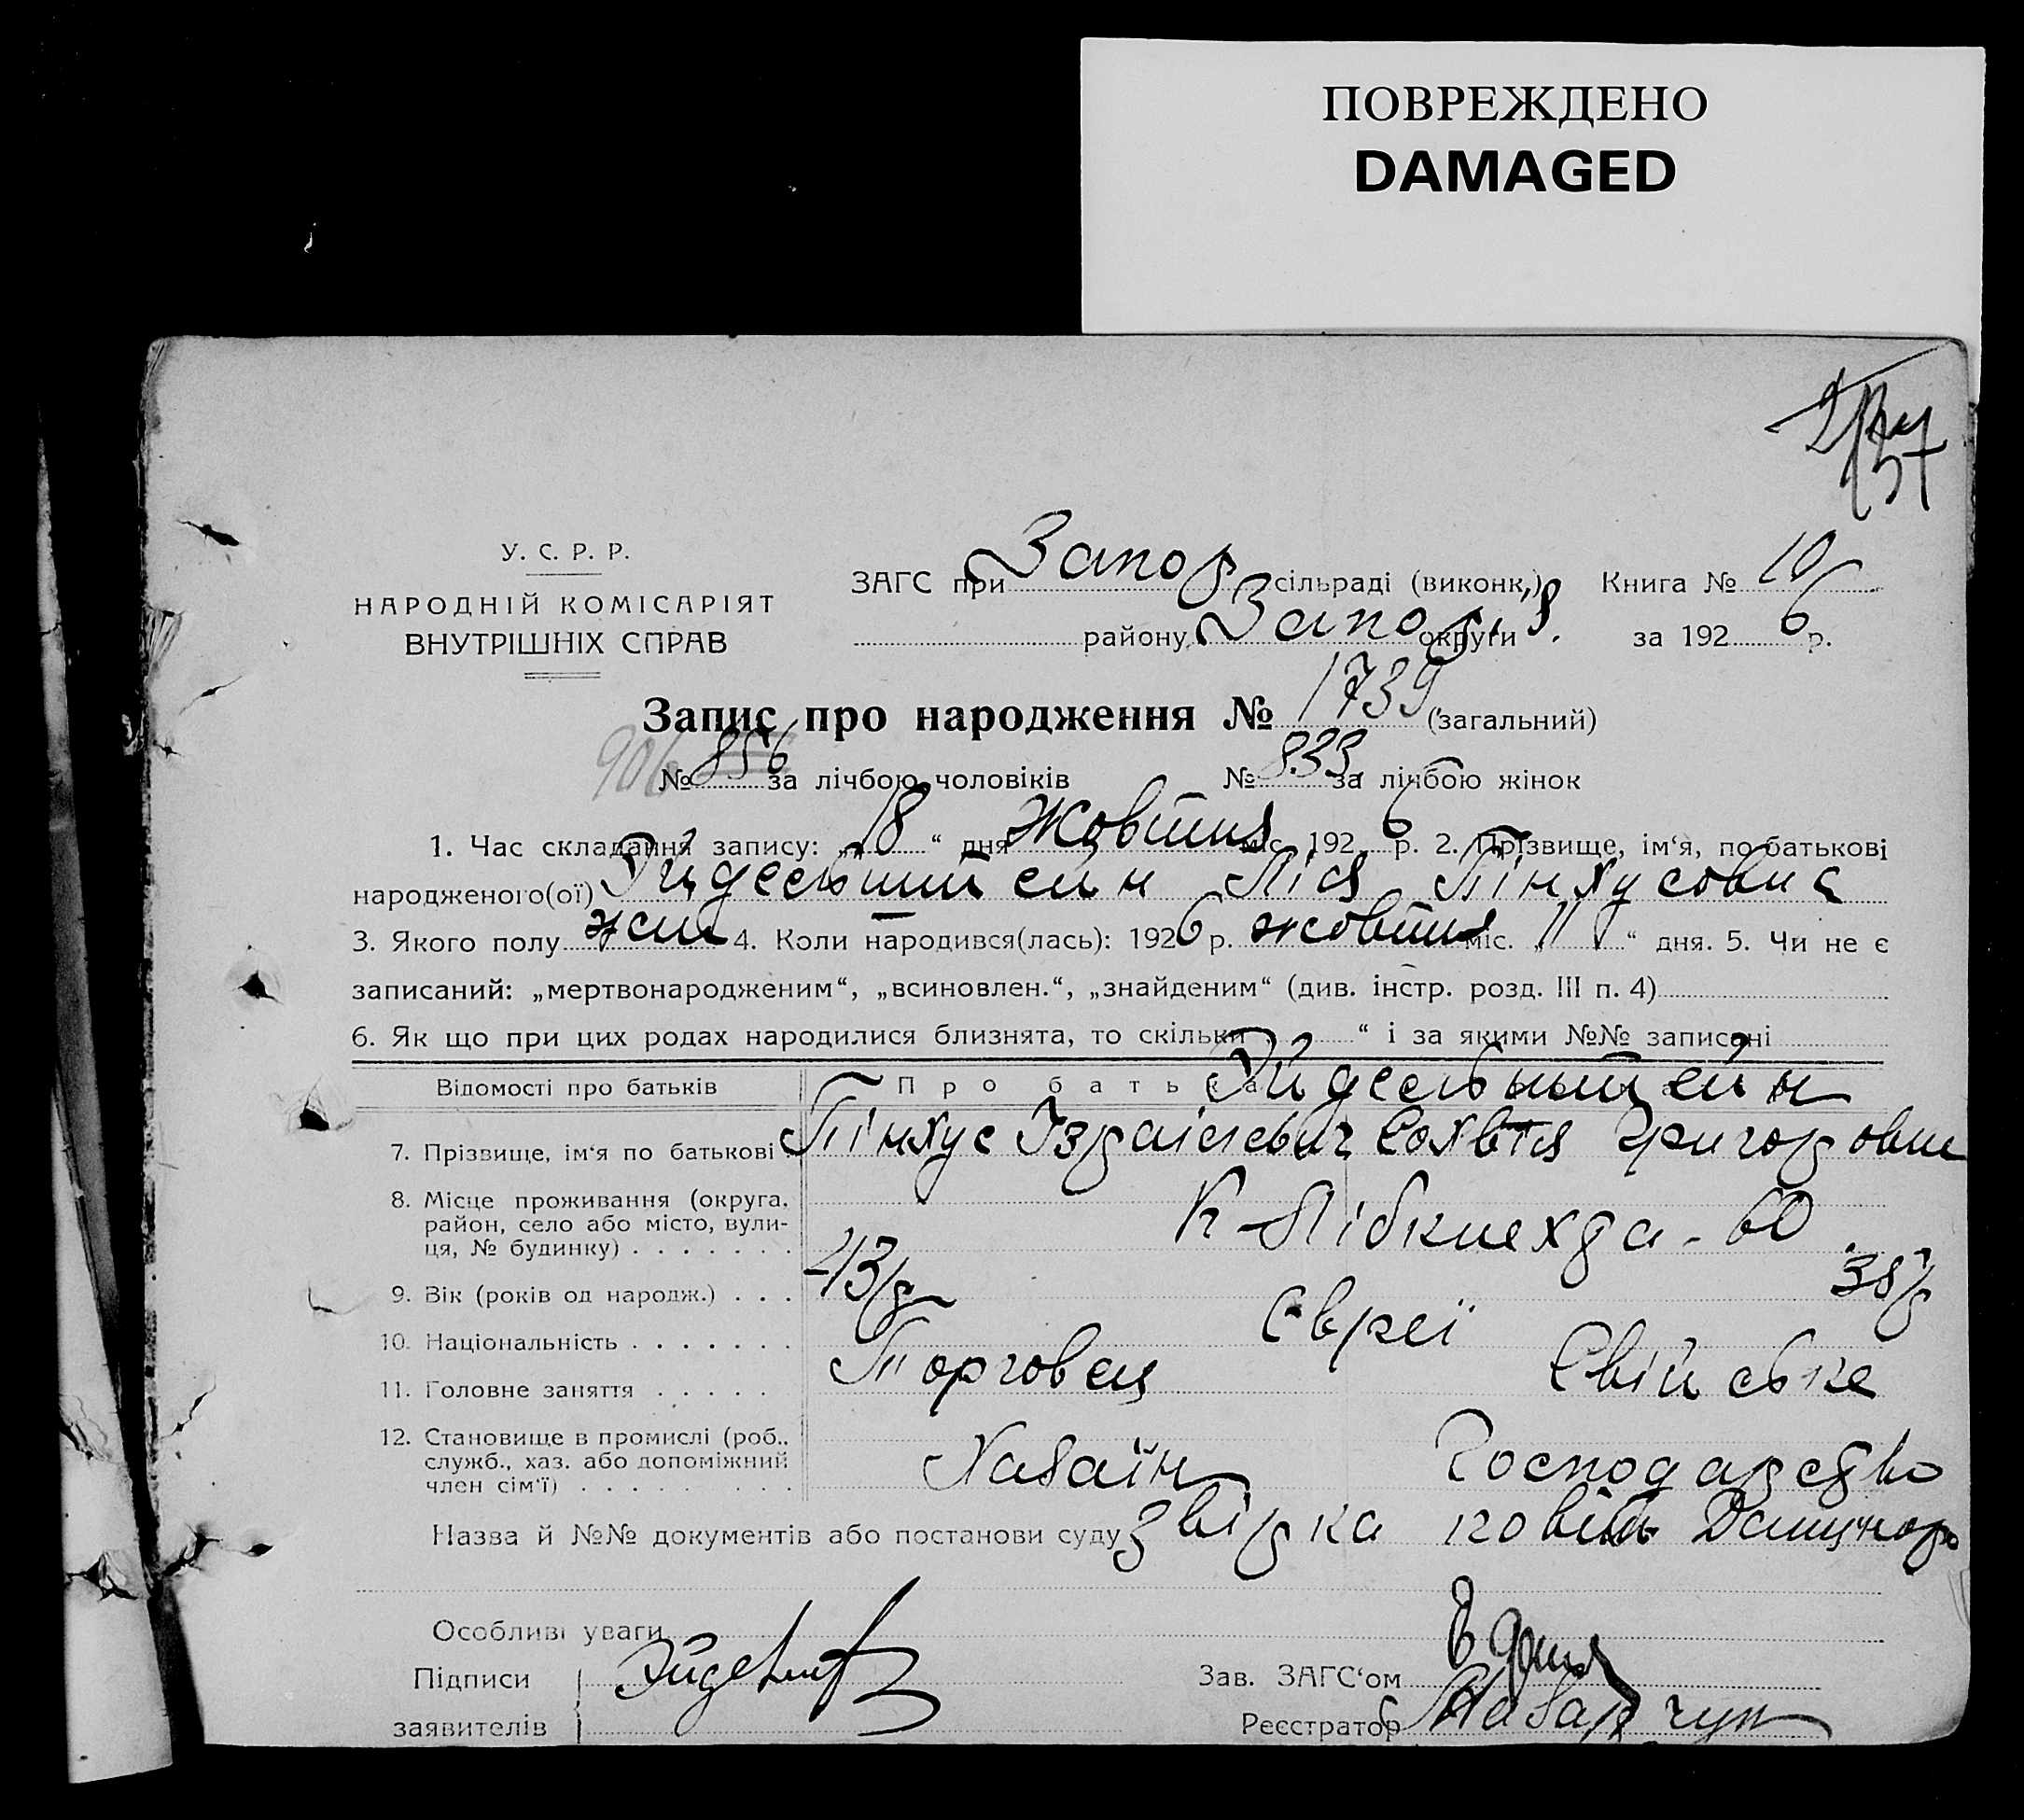 ПОВРЕЖДЕНО
DAMAGED
У. С. Р. Р.
НАРОДНІЙ КОМІСАРІЯТ
ВНУТРІШНІХ СПРАВ
ЗАГС при Запор сільраді (виконк.) Книга № 10
району Запор. округи за 1926 р.
Запис про народження № 1739 (загальний)
906 № 856 за лічбою чоловіків № 833 за лічбою жінок
1. Час складання запису: „18“ дня Жовтня міс. 1926 р. 2. Прізвище, ім‘я, по батькові
народженого(ої) Лія Пінхусовна
3. Якого полу жин 4. Коли народився(лась): 1926 р. жовтня міс. „11“ дня. 5. Чи не є
записаний: „мертвонародженим“, „всиновлен.“, „знайденим“ (див. інстр. розд. III п. 4)
6. Як що при цих родах народилися близнята, то скільки „ “ і за якими №№ записані
Відомості про батьків Про батька
7. Прізвище, ім‘я по батькові Пінхус Ізраілевич Григоровна
8. Місце проживання (округа, район, село або місто, вулиця, № будинку) К-Лібкнехта - 60
9. Вік (років од народж.) 43/р 38/р
10. Національність Євреї
11. Головне заняття Торговец Свійське
12. Становище в промислі (роб., служб., хаз. або допоміжний член сім‘ї) Хазаїн Господарство
Назва й №№ документів або постанови суду
Особливі уваги
Підписи
заявителів
Зав. ЗАГС‘ом
Реєстратор